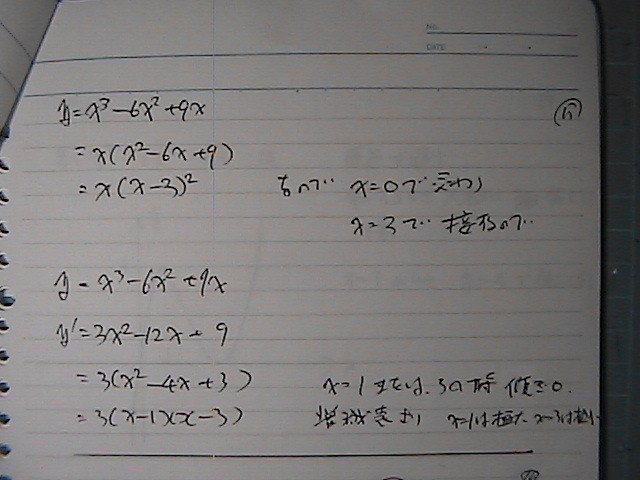 NO.
DATE
y = x³ - 6x² + 9x
= x(x² - 6x + 9)
= x(x - 3)² なので x = 0 で 交わり
x = 3 で 接するので
y = x³ - 6x² + 9x
y' = 3x² - 12x + 9
= 3(x² - 4x + 3) x = 1 または 3 の時 傾き 0.
= 3(x - 1)(x - 3) 増減表より x=1は極大 x=3は極小